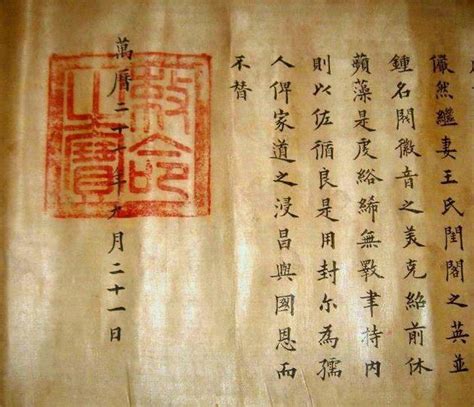 儼然繼妻王氏閨閣之英並
鍾名閥徽音之美克紹前休
蘋藻是虔綌絺無斁聿持內
則以佐循良是用封尔為孺
人俾家道之浸昌與國恩而
不替
萬曆二十一年九月二十一日
敕命之寶